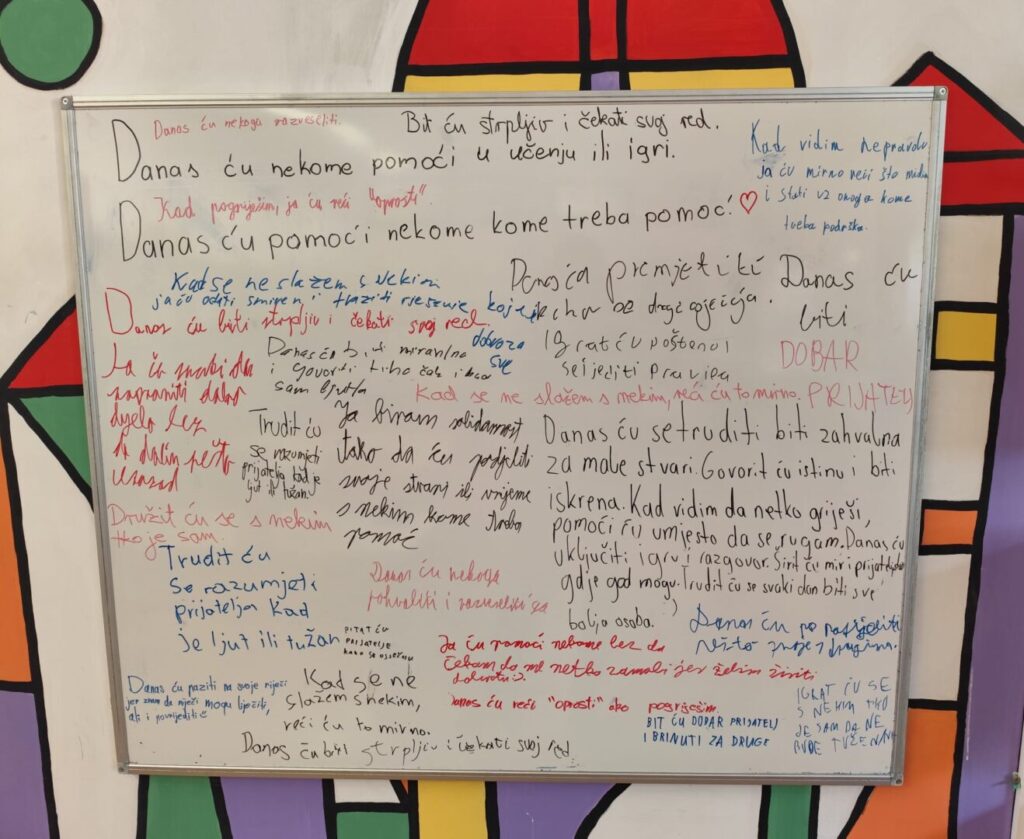 Danas ću nekoga razveseliti.
Bit ću strpljiv i čekati svoj red.
Danas ću nekome pomoći u učenju ili igri.
Kad vidim nepravdu
ja ću mirno reći što mislim
i stati uz onoga kome
treba podrška.
Kad pogriješim, ja ću reći "oprosti".
Danas ću pomoći nekome kome treba pomoć!
Kad se ne slažem s nekim
ja ću ostati smiren i tražiti rješenje koje je
dobro za
sve
Danas ću primjetiti
kako se drugi osjećaju.
Danas ću
biti
DOBAR
PRIJATELJ
Danas ću biti strpljiv i čekati svoj red.
Danas ću biti
i govoriti tiho čak i kad
sam ljuta
Igrat ću pošteno i
slijediti pravila
Kad se ne slažem s nekim, reći ću to mirno.
Ja ću
napraviti dobro
djelo bez
Trudit ću
se razumjeti
prijatelja kad je
ljut ili tužan.
Ja biram solidarnost
tako da ću podjeliti
svoje stvari ili vrijeme
s nekim kome treba
pomoć
Danas ću se truditi biti zahvalna
za male stvari. Govorit ću istinu i biti
iskrena. Kad vidim da netko griješi,
pomoći ću umjesto da se rugam. Danas ću
uključiti igru i razgovor. Širit ću mir i prijateljstvo
gdje god mogu. Trudit ću se svaki dan biti sve
bolja osoba.
Družit ću se s nekim
tko je sam.
Trudit ću
se razumjeti
prijatelja kad
je ljut ili tužan
Danas ću nekoga
pohvaliti i razveseliti ga
PITAT ĆU
PRIJATELJE
KAKO SE OSJEĆAJU
Danas ću podijeliti
nešto svoje s drugima.
Ja ću pomoći nekome bez da
čekam da me netko zamoli jer želim širiti
dobrotu
Danas ću paziti na svoje riječi
jer znam da riječi mogu liječiti,
ali i povrijediti
Kad se ne
slažem s nekim,
reći ću to mirno.
Danas ću reći "oprosti" ako pogriješim.
BIT ĆU DOBAR PRIJATELJ
I BRINUTI ZA DRUGE
IGRAT ĆU SE
S NEKIM TKO
JE SAM DA NE
BUDE
Danas ću biti strpljiv i čekati svoj red